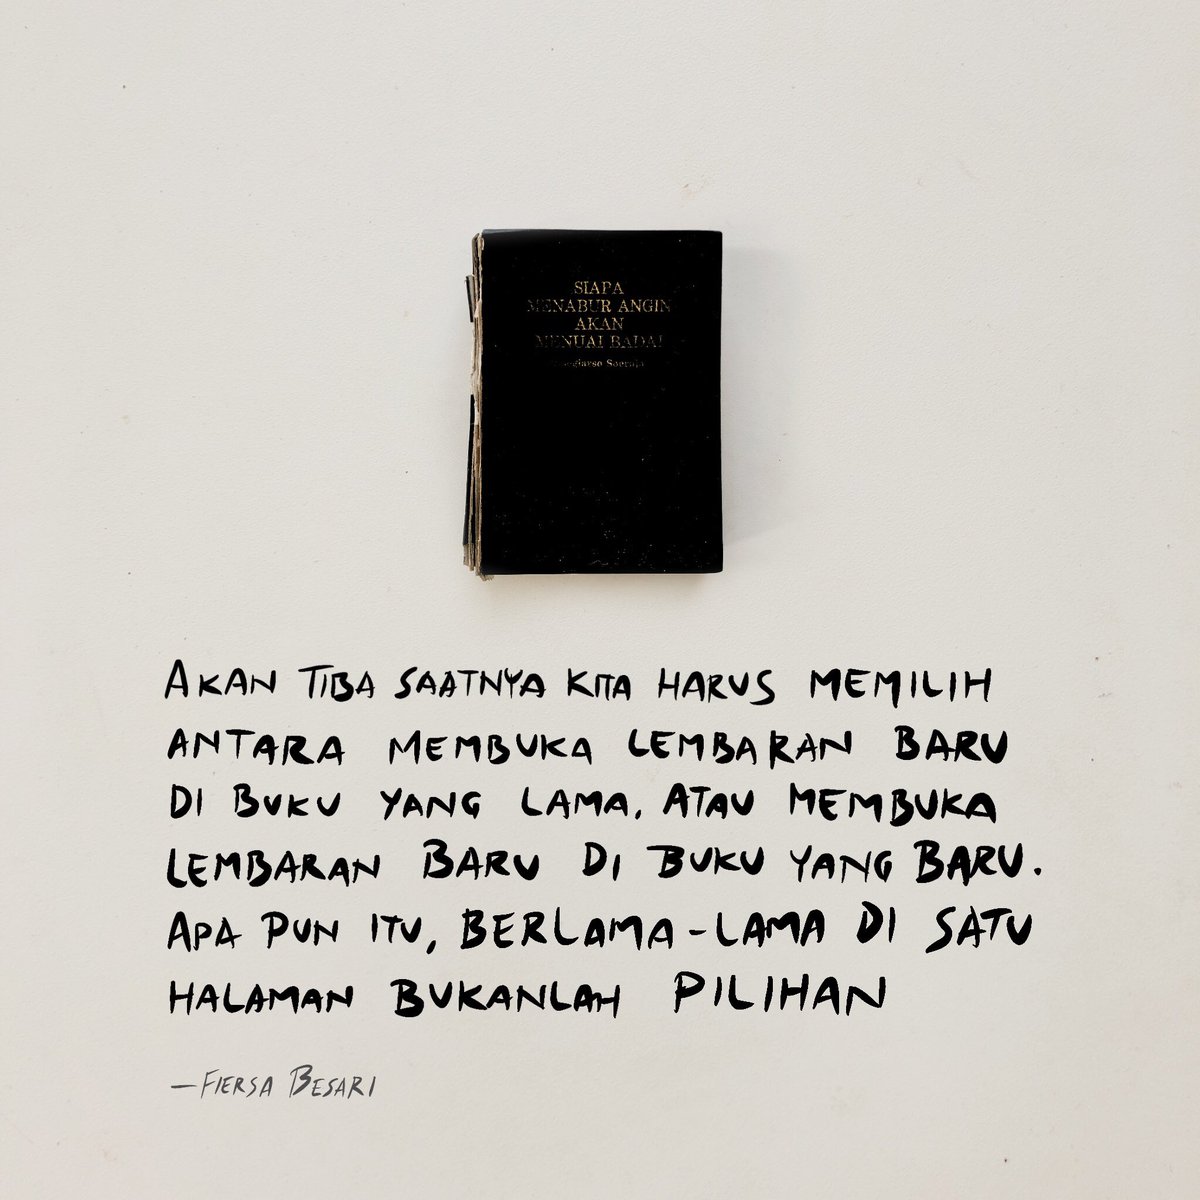 SIAPA
MENABUR ANGIN
AKAN
MENUAI BADAI
AKAN TIBA SAATNYA KITA HARUS MEMILIH
ANTARA MEMBUKA LEMBARAN BARU
DI BUKU YANG LAMA, ATAU MEMBUKA
LEMBARAN BARU DI BUKU YANG BARU.
APA PUN ITU, BERLAMA-LAMA DI SATU
HALAMAN BUKANLAH PILIHAN
—FIERSA BESARI